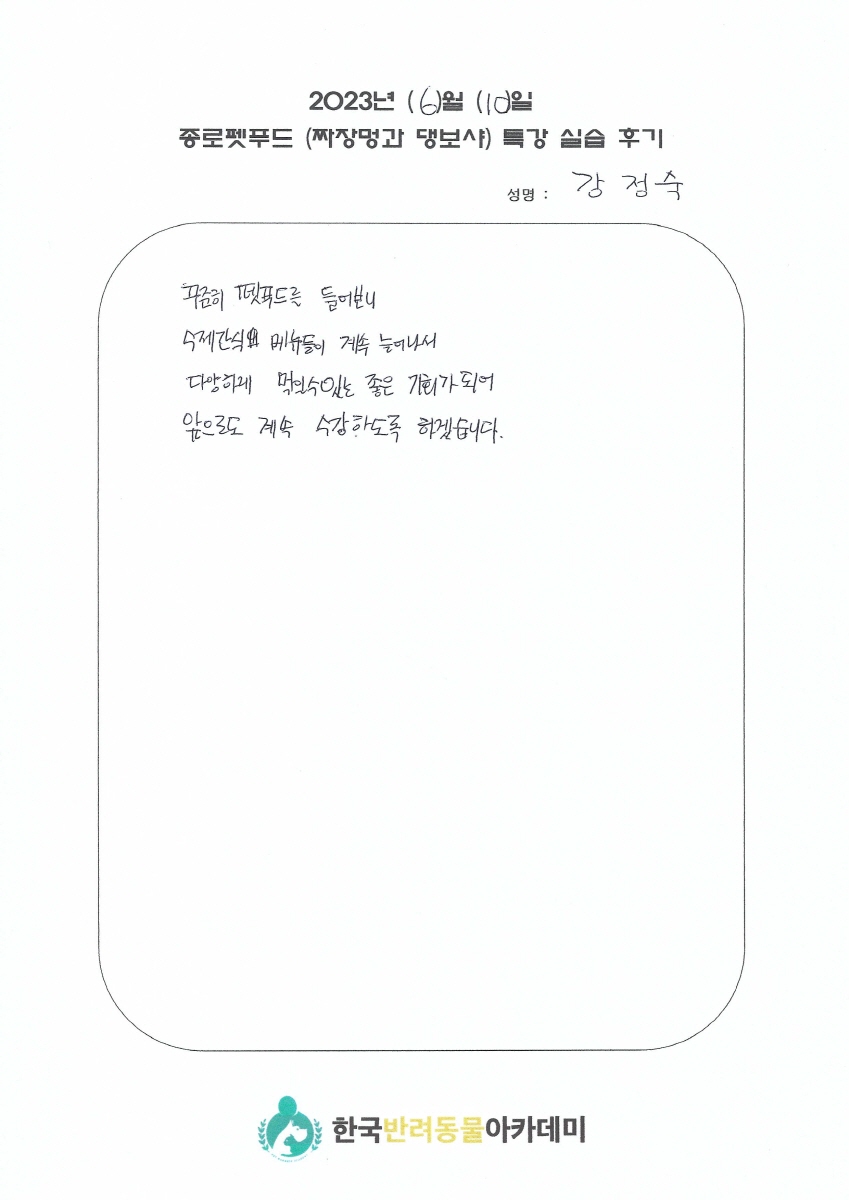 2023년 (6)월 (10)일
종로펫푸드 (짜장멍과 댕보샤) 특강 실습 후기
성명 : 강 정숙
꾸준히 펫푸드를 들어보니
수제간식 메뉴들이 계속 늘어나서
다양하게 먹일수있는 좋은 기회가 되어
앞으로도 계속 수강하도록 하겠습니다.
한국반려동물아카데미